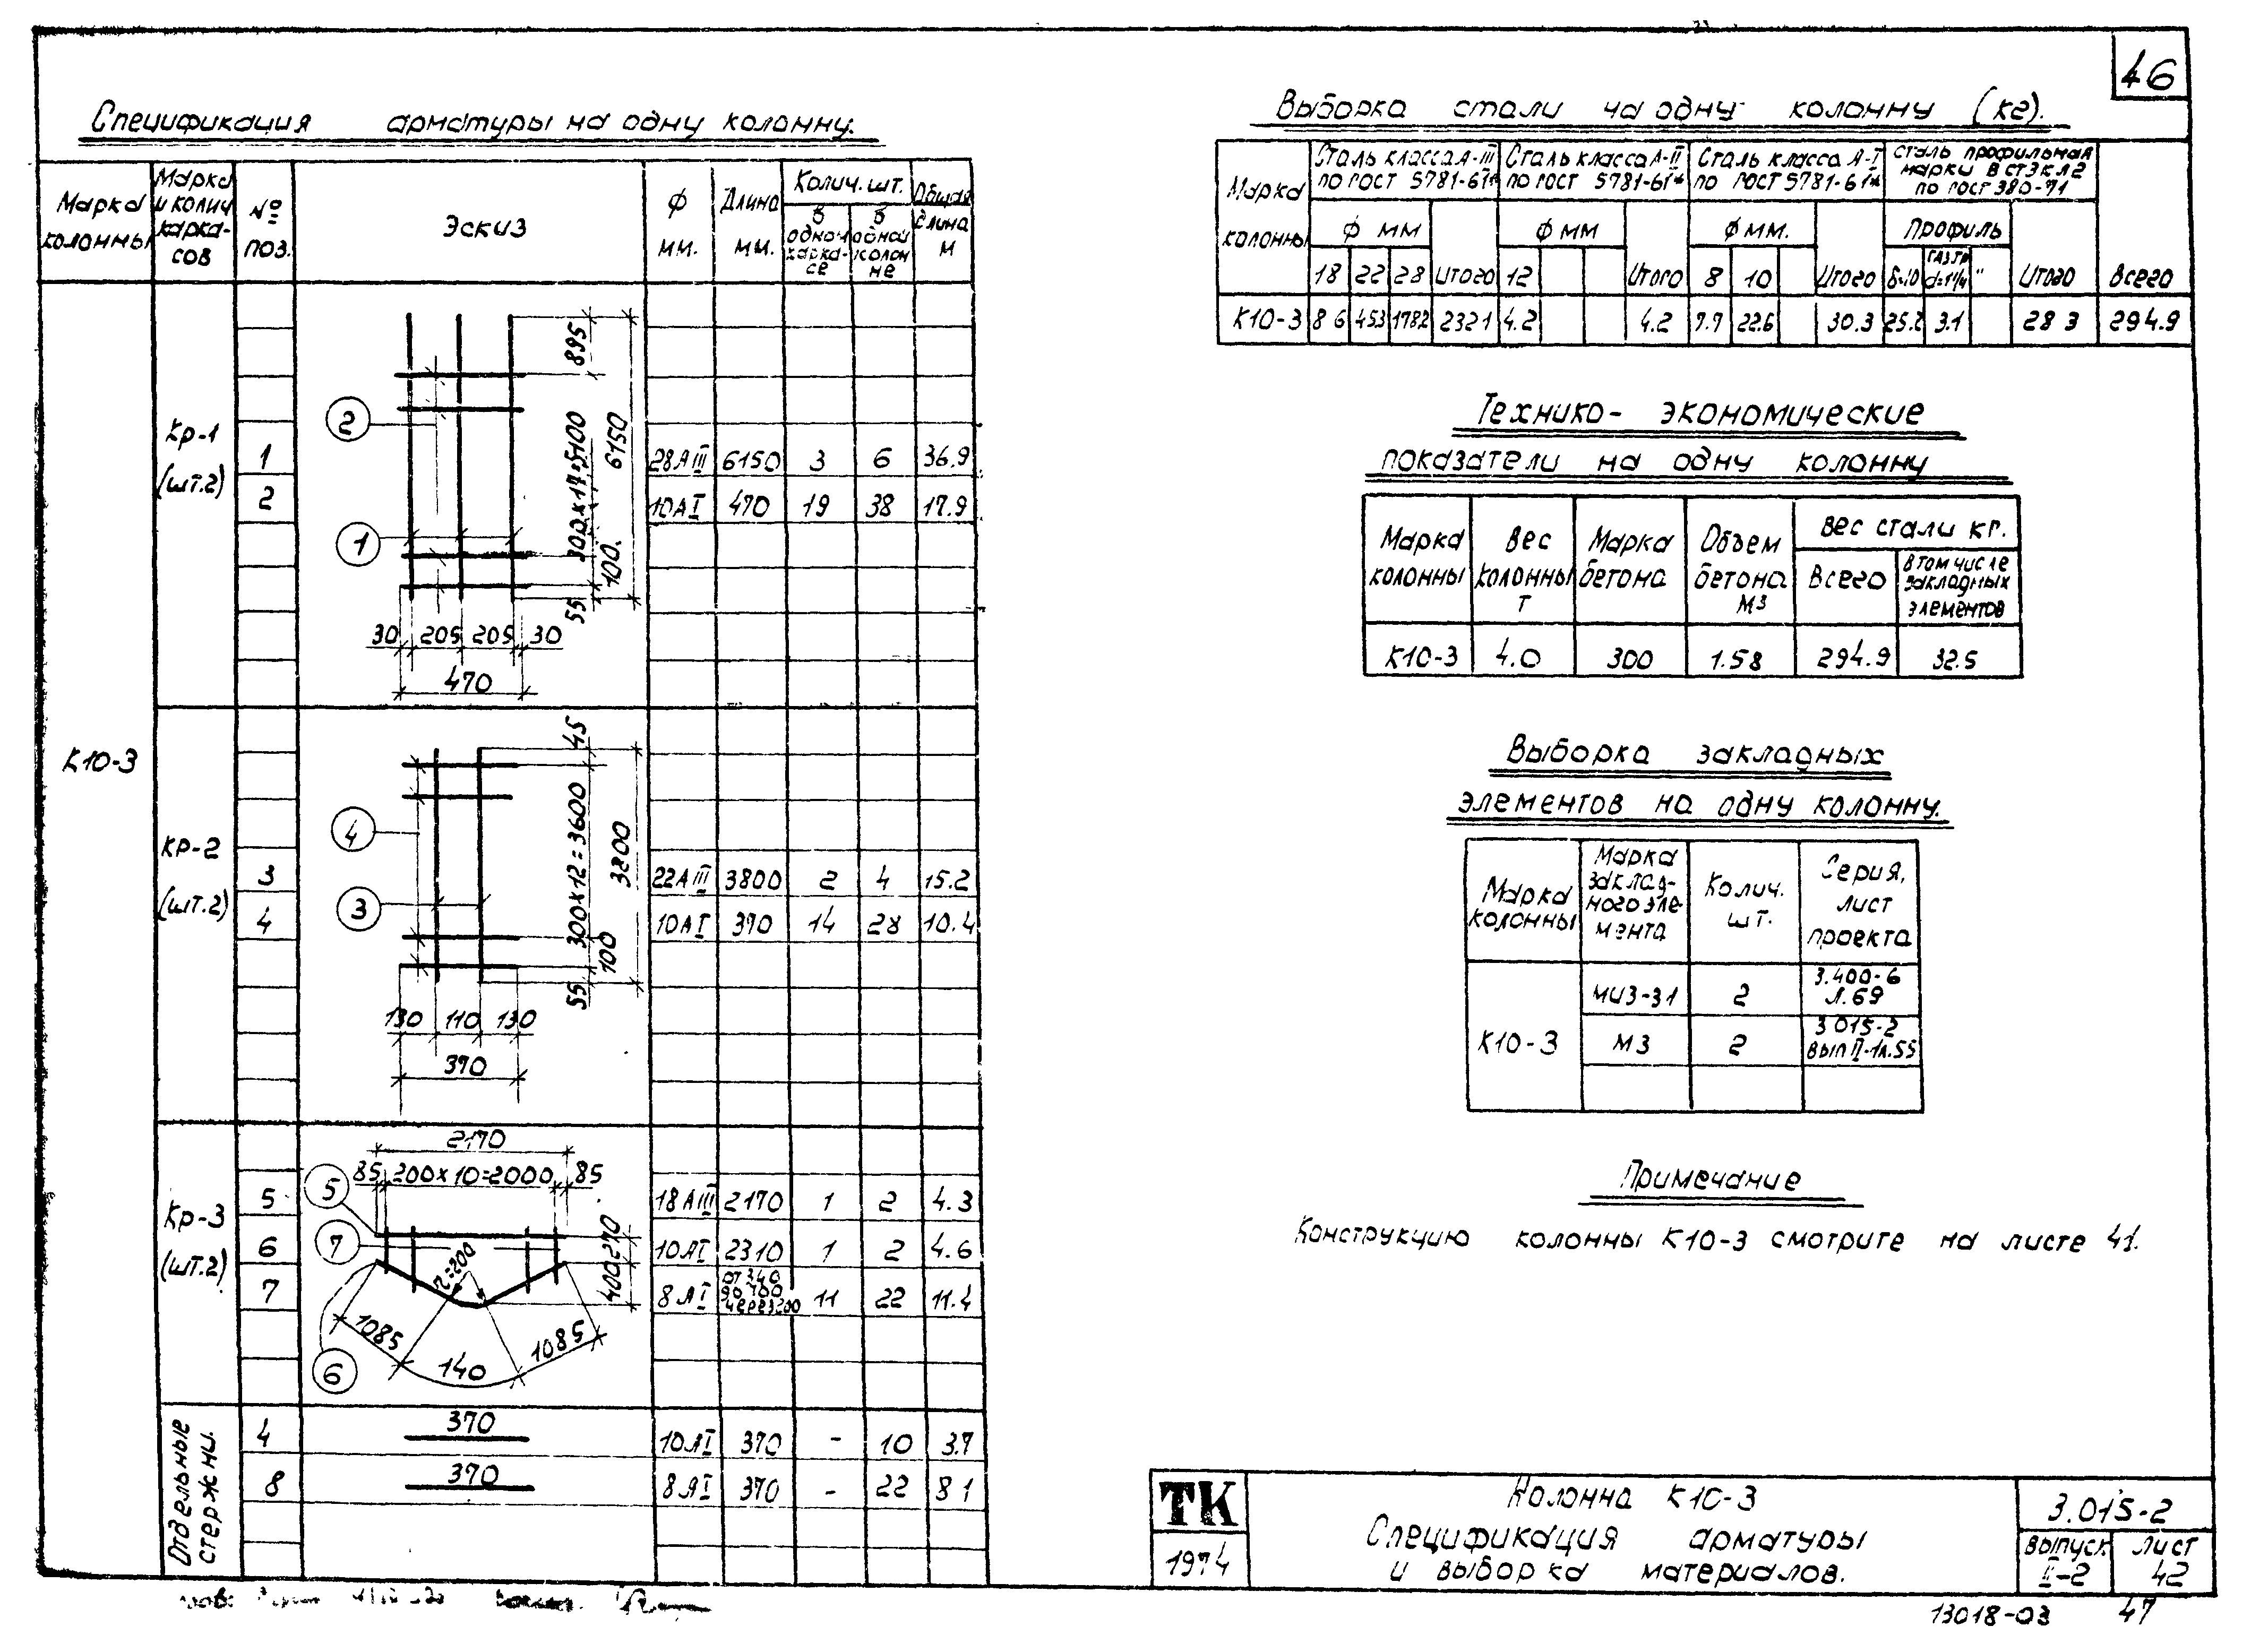 46
Спецификация арматуры на одну колонну.
Марка колонны
Марка и колич. карка-сов
№ поз.
Эскиз
ф мм.
Длина мм.
Колич. шт.
в одном карка-се
в одной колон не
Общая длина м
К10-3
Кр-1 (шт.2)
2
1
895
6150
300х17=5100
100.
55
30 205 205 30
470
1 28АIII 6150 3 6 36.9
2 10АI 470 19 38 17.9
КР-2 (шт.2)
4
3
45
300х12=3600
3800
100
55
130 110 130
370
3 22АIII 3800 2 4 15.2
4 10АI 370 14 28 10.4
Кр-3 (шт.2)
2170
85 200х10=2000 85
5
7
6
r=200
400 270
1085 140 1085
5 18АIII 2170 1 2 4.3
6 10АI 2310 1 2 4.6
7 8АI от 340 до 700 через 200 11 22 11.4
Отдельные стержни.
4 370 10АI 370 - 10 3.7
8 370 8АI 370 - 22 8 1
Выборка стали на одну колонну (кг).
Марка колонны
Сталь класса А-III по ГОСТ 5781-61*
Сталь класса А-II по ГОСТ 5781-61*
Сталь класса А-I по ГОСТ 5781-61*
Сталь профильная марки В СТ3кп2 по ГОСТ 380-71
ф мм ф мм ф мм. Профиль
18 22 28 Итого 12 Итого 8 10 Итого δ=10 газ.тр d=1¼" Итого Всего
К10-3 8 6 45.3 178.2 232 1 4.2 4.2 7.7 22.6 30.3 25.2 3.1 28 3 294.9
Технико-экономические
показатели на одну колонну
Марка колонны
Вес колонны т
Марка бетона
Объем бетона м3
Вес стали кг.
Всего
В том числе закладных элементов
К10-3 4.0 300 1.58 294.9 32.5
Выборка закладных
элементов на одну колонну.
Марка колонны
Марка заклад-ного эле мента
Колич. шт.
Серия, лист проекта
К10-3
МИ3-31 2 3.400-6 Л.69
М3 2 3 015-2 вып II-1 л.55
Примечание
Конструкцию колонны К10-3 смотрите на листе 41.
ТК
1974
Колонна К10-3
Спецификация арматуры
и выборка материалов.
3.015-2
выпуск II-2
лист 42
13018-03 47